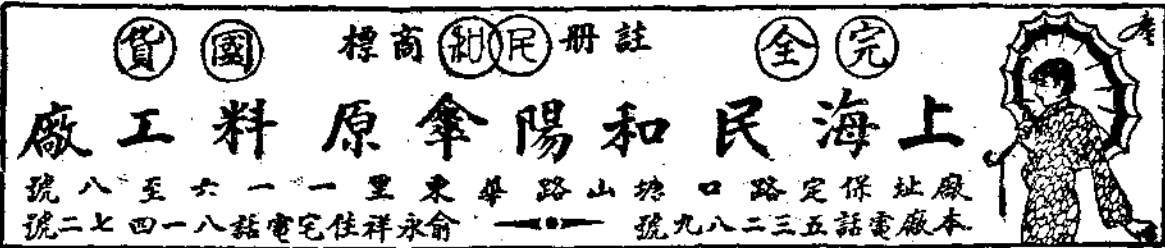 完全 註冊民和商標 國貨
上海民和陽傘原料工廠
廠址保定路口塘山路華東里一一六至八號
本廠電話五三二八九號 俞永祥住宅電話八一四七二號